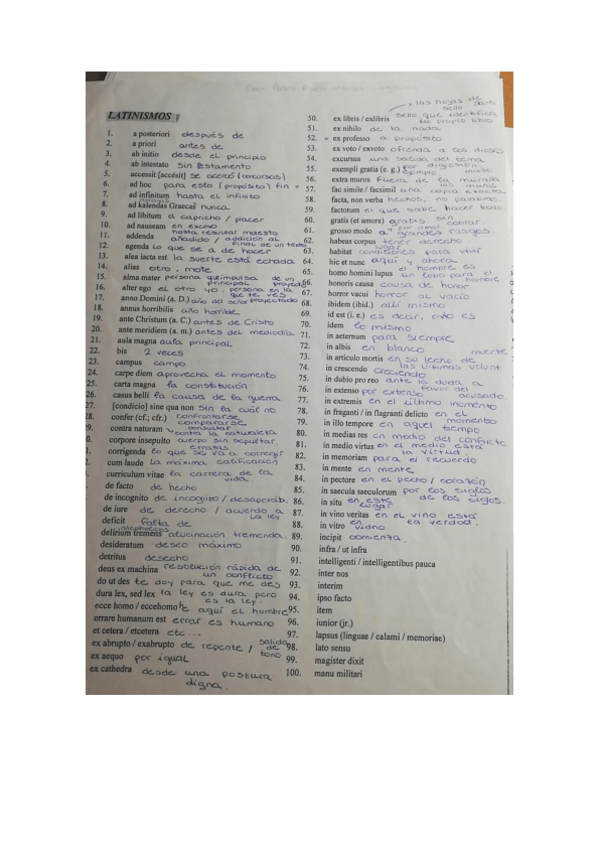 LATINISMOS
1. a posteriori después de
2. a priori antes de
3. ab initio desde el principio
4. ab intestato sin testamento
5. accessit [accésit] se acercó (concursos)
6. ad hoc para esto (propósito) fin
7. ad infinitum hasta el infinito
8. ad kalendas Graecas nunca
9. ad libitum a capricho / placer
10. ad nauseam en exceso
11. addenda añadido / addición al final de un texto
12. agenda lo que se a de hacer
13. alea iacta est la suerte está echada
14. alias otro, mote
15. alma mater persona que impulsa de un proyecto
16. alter ego el otro yo. persona en la que te ves proyectado
17. anno Domini (a. D.) año del señor
18. annus horribilis año horrible
19. ante Christum (a. C.) antes de Cristo
20. ante meridiem (a. m.) antes del mediodía
21. aula magna aula principal
22. bis 2 veces
23. campus campo
24. carpe diem aprovecha el momento
25. carta magna la constitución
26. casus belli la causa de la guerra
27. [condicio] sine qua non sin la cual no
28. confer (cf.; cfr.) confrontarse compararse consultar
29. contra naturam contra la naturaleza
30. corpore insepulto cuerpo sin sepultar.
corrigenda lo que se va a corregir erratas
cum laude la máxima calificación
curriculum vitae la carrera de la vida.
de facto de hecho
de incognito de incognito / desapercib.
de iure de derecho / acuerdo a la ley
deficit falta de
delirium tremens alucinación tremenda.
desideratum deseo máximo
detritus desecho
deus ex machina resolución rápida de un conflicto
do ut des te doy para que me des
dura lex, sed lex la ley es dura pero es la ley
ecce homo / eccehomo he aquí el hombre
errare humanum est errar es humano
et cetera / etcetera etc...
ex abrupto / exabrupto de repente / salida de tono
ex aequo por igual
ex cathedra desde una postura digna.
y las hojas de
50. ex libris / exlibris sello que identifica tu propio libro
51. ex nihilo de la nada
52. ex professo a propósito
53. ex voto / exvoto ofrenda a los dioses
54. excursus una salida del tema por digresión
55. exempli gratia (e. g.) ejemplo
56. extra muros fuera de la muralla los muros
57. fac simile / facsimil una copia exacta
58. facta, non verba hechos, no palabras.
59. factotum el que sabe hacer todo
60. gratis (et amore) gratis sin cobrar por amor
61. grosso modo a grandes rasgos.
62. habeas corpus tener derecho
63. habitat condiciones para vivir
64. hic et nunc aquí y ahora
65. homo homini lupus el hombre es un lobo para el hombre.
66. honoris causa causa de honor
67. horror vacui horror al vacío
68. ibidem (ibid.) allí mismo
69. id est (i. e.) es decir, esto es
70. idem lo mismo
71. in aeternum para siempre
72. in albis en blanco
73. in articulo mortis en su lecho de muerte las últimas volunt.
74. in crescendo creciendo
75. in dubio pro reo ante la duda a favor del acusado.
76. in extenso por extenso
77. in extremis en el último momento
78. in fraganti / in flagranti delicto en el momento
79. in illo tempore en aquel tiempo
80. in medias res en medio del conflicto
81. in medio virtus en el medio está la virtud
82. in memoriam para el recuerdo
83. in mente en mente
84. in pectore en el pecho / corazón
85. in saecula saeculorum por los siglos de los siglos.
86. in situ en este lugar
87. in vino veritas en el vino está la verdad.
88. in vitro en vidrio
89. incipit comienza.
90. infra / ut infra
91. intelligenti / intelligentibus pauca
92. inter nos
93. interim
94. ipso facto
95. item
96. iunior (jr.)
97. lapsus (linguae / calami / memoriae)
98. lato sensu
99. magister dixit
100. manu militari